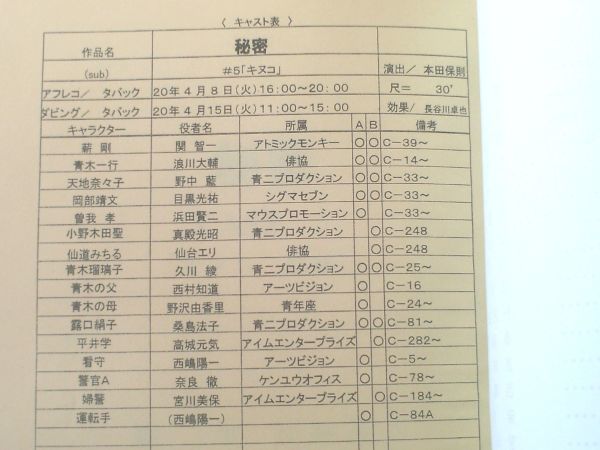 〈 キャスト表 〉
作品名 秘密
(sub) #5「キヌコ」 演出/ 本田保則
アフレコ/ タバック 20年4月8日(火)16:00～20:00 尺= 30'
ダビング/ タバック 20年4月15日(火)11:00～15:00 効果/ 長谷川卓也
キャラクター 役者名 所属 A B 備考
薪 剛 関 智一 アトミックモンキー ○ ○ C-39～
青木一行 浪川大輔 俳協 ○ ○ C-14～
天地奈々子 野中 藍 青二プロダクション ○ ○ C-33～
岡部靖文 目黒光祐 シグマセブン ○ ○ C-33～
曽我 孝 浜田賢二 マウスプロモーション ○ C-33～
小野木田聖 真殿光昭 青二プロダクション ○ C-248
仙道みちる 仙台エリ 俳協 ○ C-248
青木瑠璃子 久川 綾 青二プロダクション ○ ○ C-25～
青木の父 西村知道 アーツビジョン ○ C-16
青木の母 野沢由香里 青年座 ○ C-24～
露口絹子 桑島法子 青二プロダクション ○ ○ C-81～
平井学 高城元気 アイムエンタープライズ ○ C-282～
看守 西嶋陽一 アーツビジョン ○ C-5～
警官A 奈良 徹 ケンユウオフィス ○ C-78～
婦警 宮川美保 アイムエンタープライズ ○ C-184～
運転手 (西嶋陽一) ○ C-84A